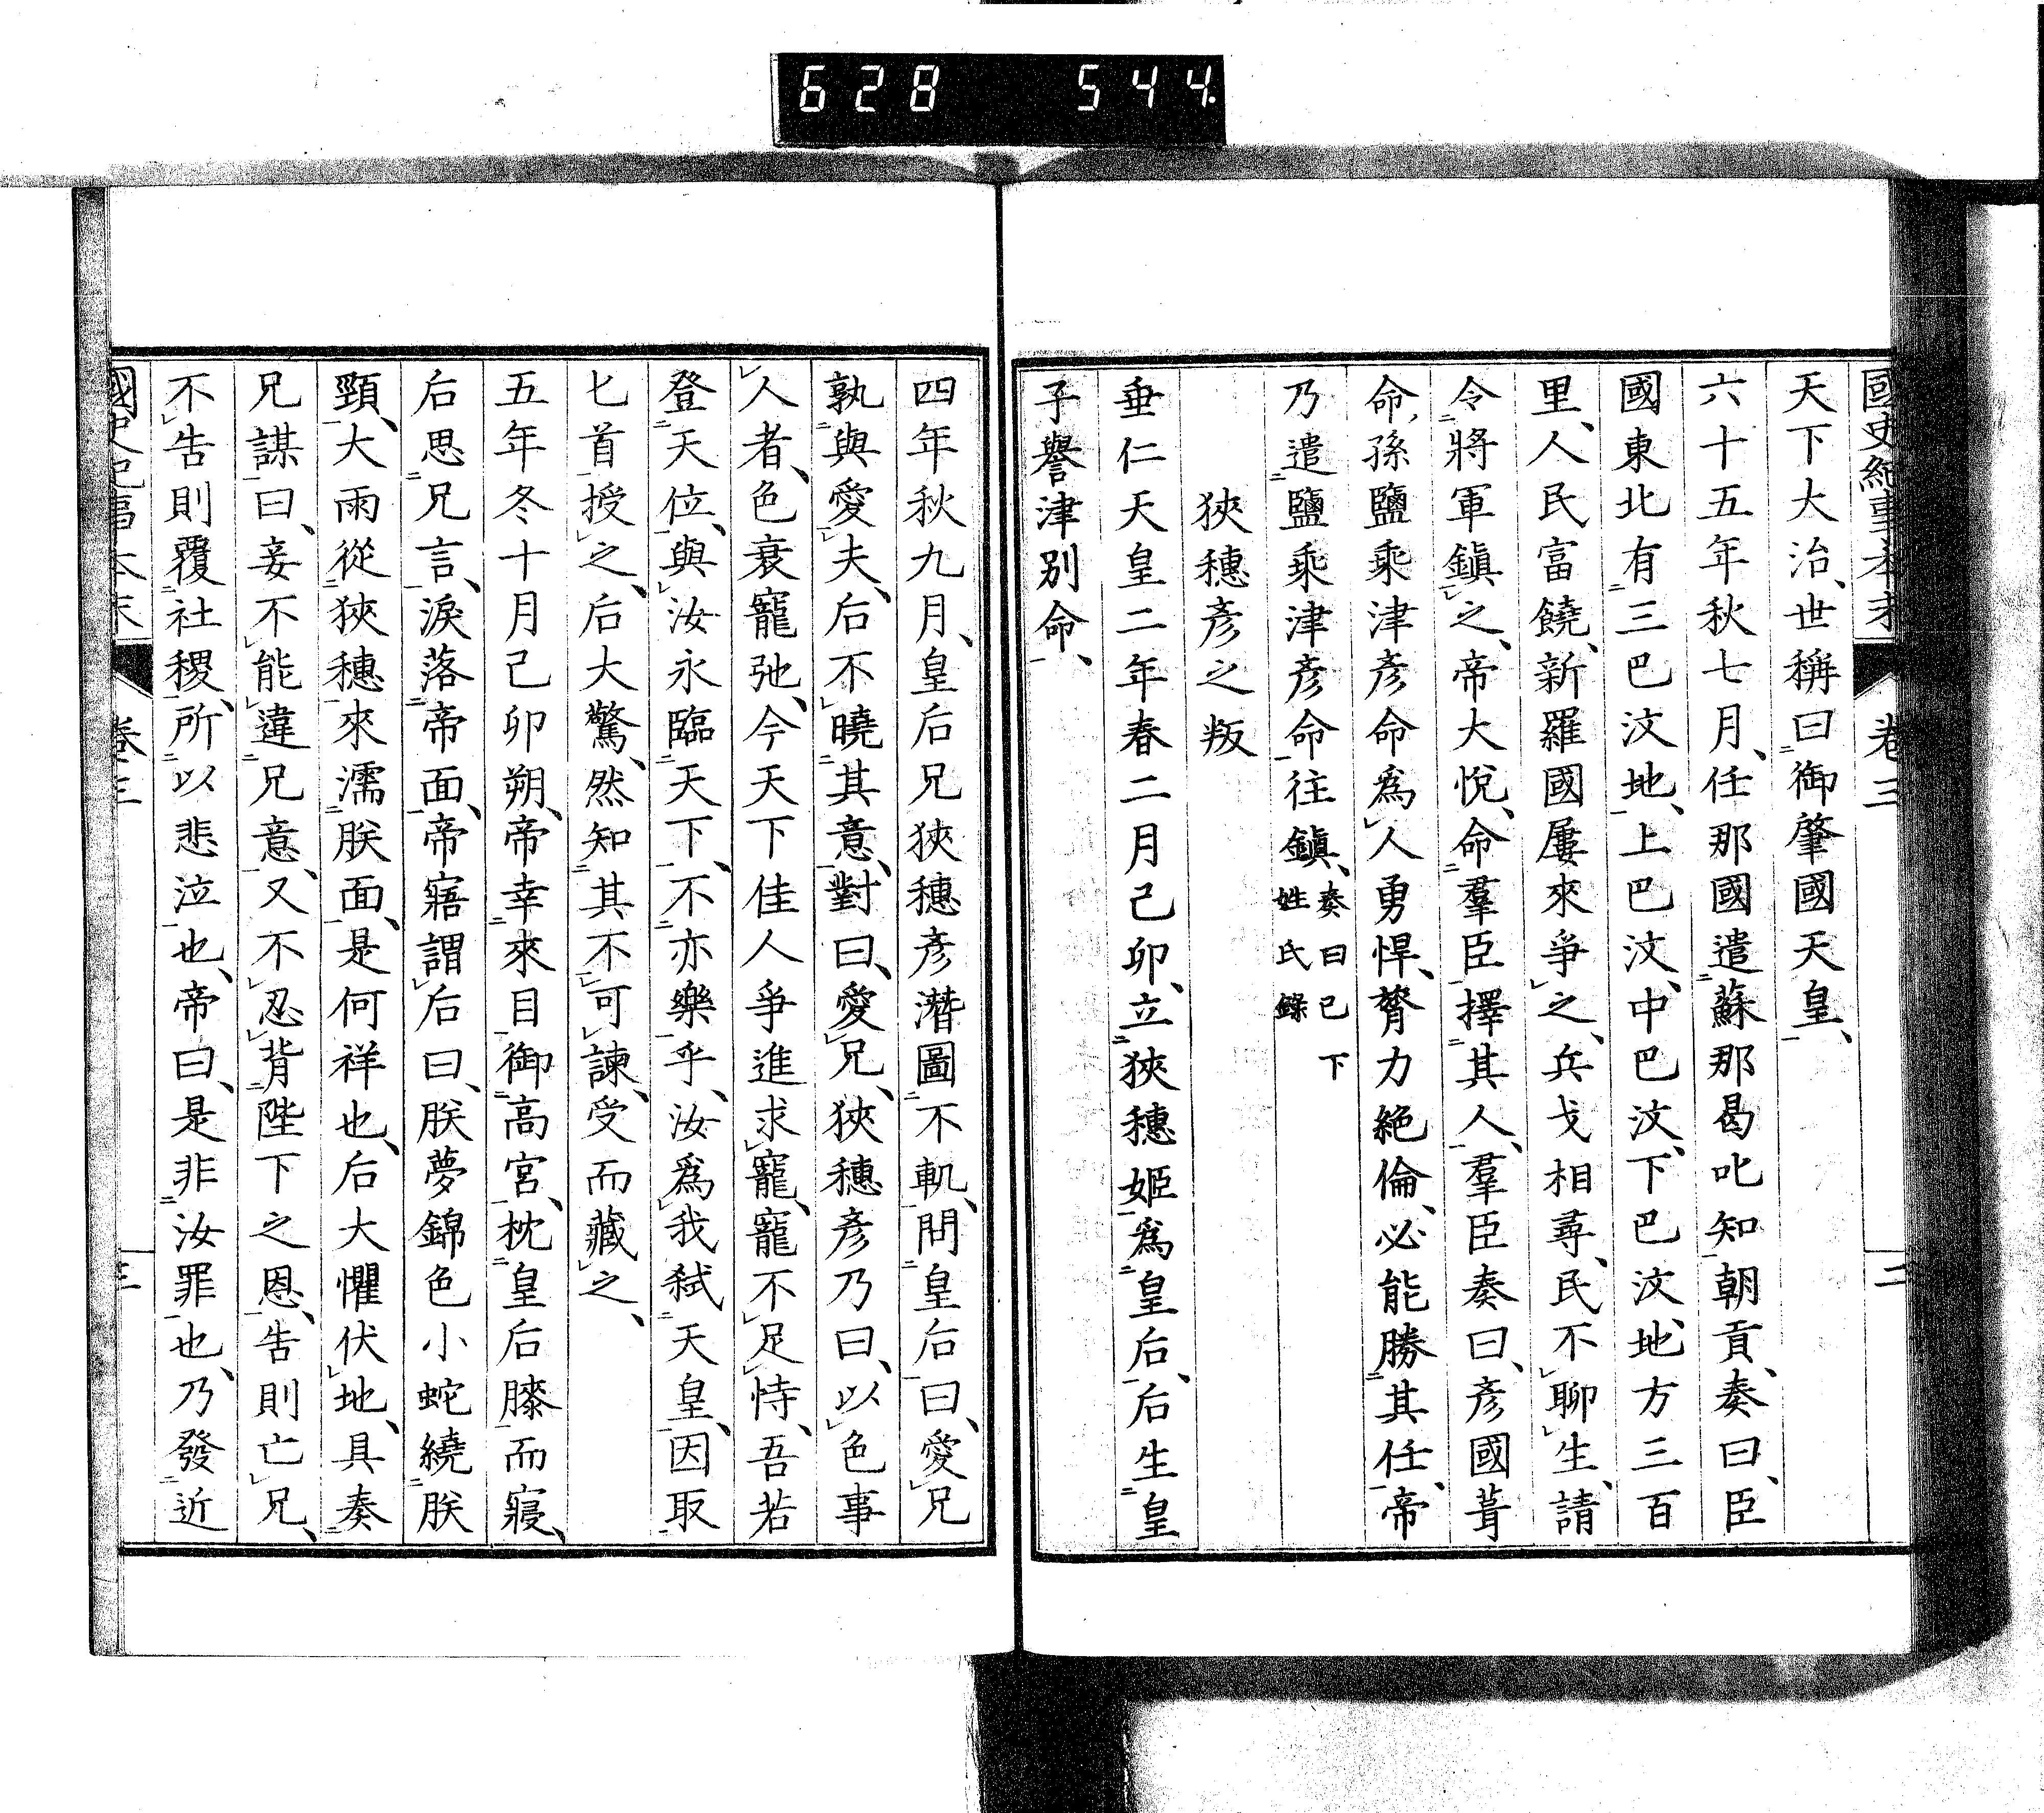 628 544
國史紀事本末 卷三 二
天下大治、世稱曰御肇國天皇、
六十五年秋七月、任那國遣蘇那曷叱知朝貢、奏曰、臣
國東北有三巴汶地、上巴汶、中巴汶、下巴汶、地方三百
里、人民富饒、新羅國屢來爭之、兵戈相尋、民不聊生、請
令將軍鎭之、帝大悅、命羣臣擇其人、羣臣奏曰、彥國葺
命、孫鹽乘津彥命爲人勇悍、膂力絕倫、必能勝其任、帝
乃遣鹽乘津彥命往鎭、奏曰已下
姓氏錄
狹穗彥之叛
垂仁天皇二年春二月己卯、立狹穗姬爲皇后、后生皇
子譽津別命、
四年秋九月、皇后兄狹穗彥潛圖不軌、問皇后曰、愛兄
孰與愛夫、后不曉其意、對曰、愛兄、狹穗彥乃曰、以色事
人者、色衰寵弛、今天下佳人爭進求寵、寵不足恃、吾若
登天位、與汝永臨天下、不亦樂乎、汝爲我弑天皇、因取
匕首授之、后大驚、然知其不可諫、受而藏之、
五年冬十月己卯朔、帝幸來目御高宮、枕皇后膝而寢、
后思兄言、淚落帝面、帝寤謂后曰、朕夢錦色小蛇繞朕
頸、大雨從狹穗來濡朕面、是何祥也、后大懼伏地、具奏
兄謀曰、妾不能違兄意、又不忍背陛下之恩、告則亡兄、
不告則覆社稷、所以悲泣也、帝曰、是非汝罪也、乃發近
國史紀事本末 卷三 三